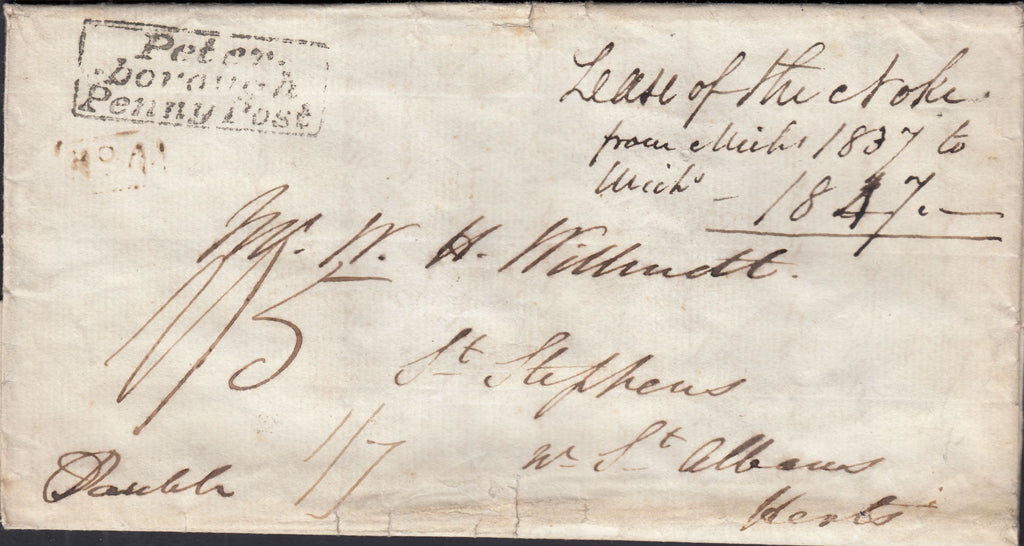 Peter-
borough
Penny Post
No
Lease of the Noke
from Michs 1837 to
Michs – 1847.–
Mr. W. H. Willmott.
1/5
St Stephens
1/7
Nr St Albans
Double
Herts